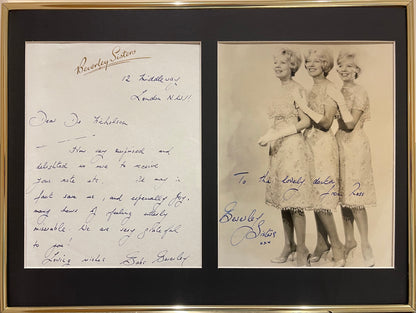 Beverley Sisters
12 Middleway
London N.W.11
Dear Dr
How very surprised and
delighted we were to receive
your note etc. It may in
fact save us, and especially Joy,
many hours of feeling utterly
miserable. We are very grateful
to you!
Loving wishes Babs Beverley
To the lovely
from
Beverley
Sisters
xxx